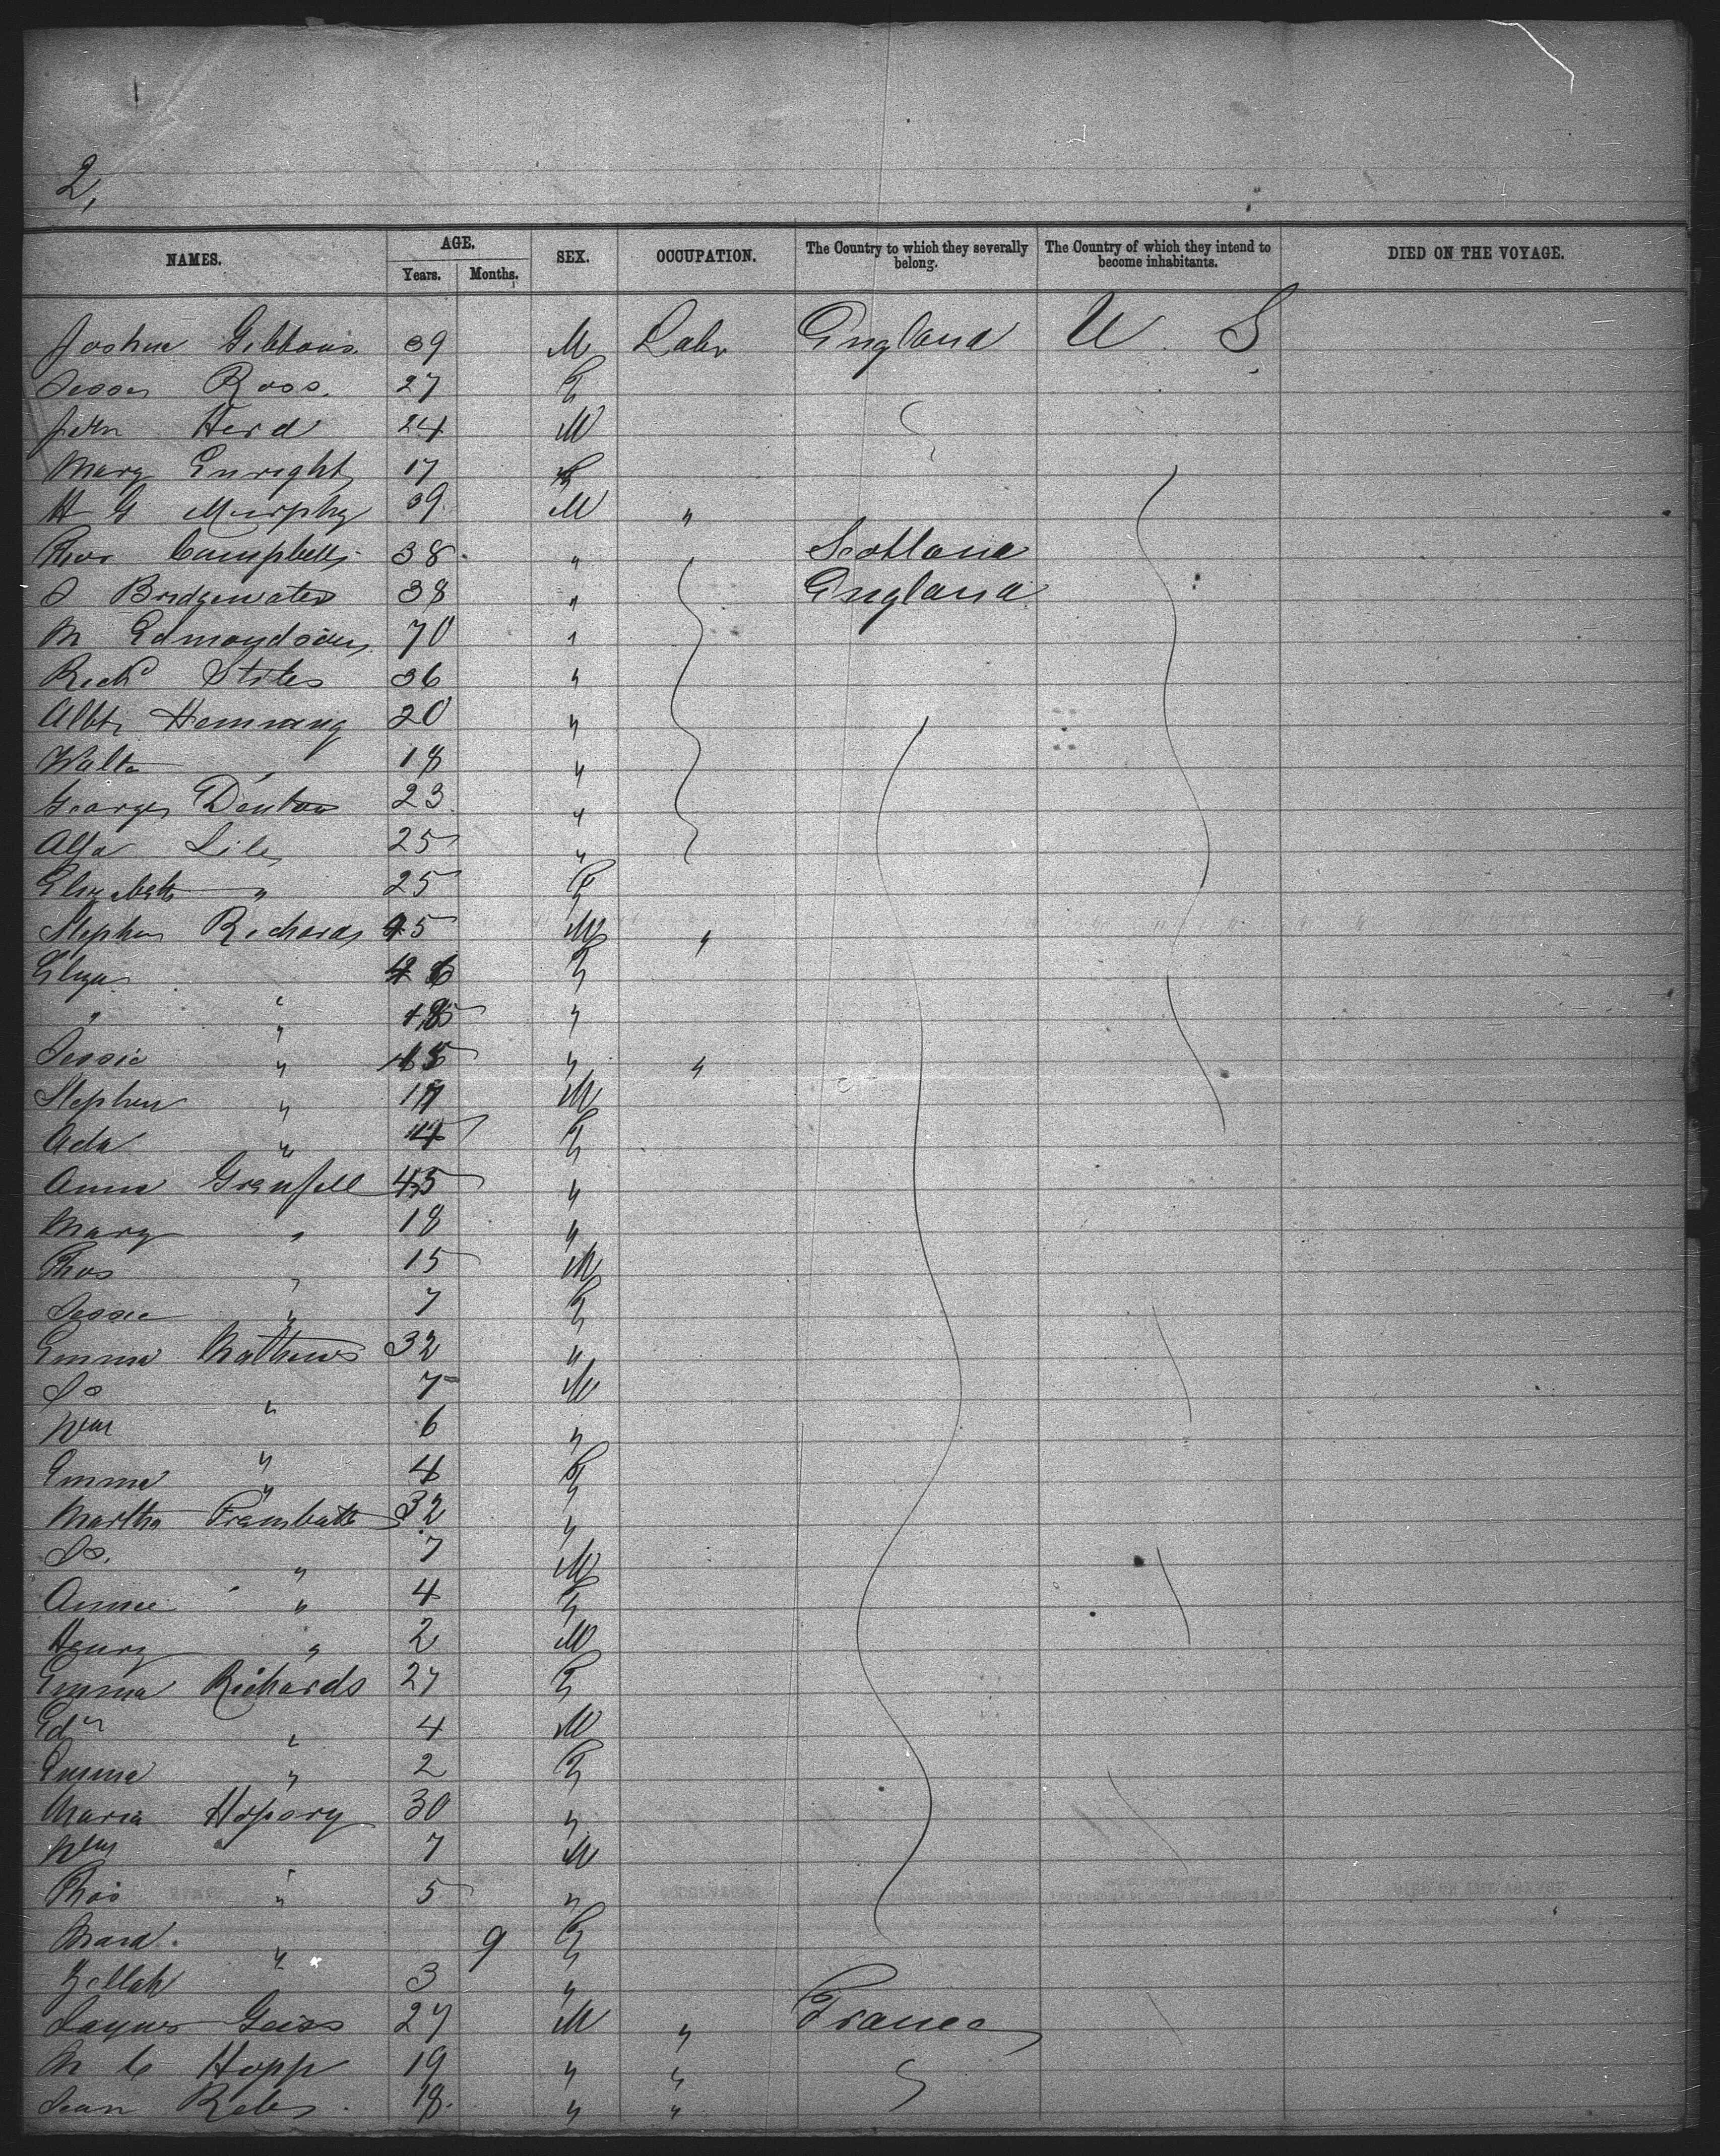 2,
NAMES. AGE. Years. Months. SEX. OCCUPATION. The Country to which they severally belong. The Country of which they intend to become inhabitants. DIED ON THE VOYAGE.
Joshua Gibbons 39 M Labr England U S
Ross. 27 F
John Herd 24 M
Mary Enright 17 F
H G Murphy 39 M "
Thos Campbell 38 " Scotland
J Bridgewater 38 " England
M 70 "
Richd Stiles 36 "
Albt Hemming 20 "
Walter " 18 "
George Denton 23 "
Alfd Lile 25 "
Elizabeth " 25 F
Stephen Richards 45 M "
Eliza " F
" " "
Jessie " " "
Stephen " M
Ada " F
Anna Grenfell 45 "
Mary " 18 "
Thos " 15 M
Jessie " 7 F
Emma Mathews 32 "
" 7 M
Wm " 6 "
Emma " 4 F
Martha Trembath 32 "
" 7 M
Annie " 4 F
Henry " 2 M
Emma Richards 27 F
Edn " 4 M
Emma " 2 F
Maria 30 "
Wm " 7 M
Thos " 5 "
" 9 F
Zellah 3 "
Geiss 27 M " France
M C Hopp 19 " "
Jean 18. " "